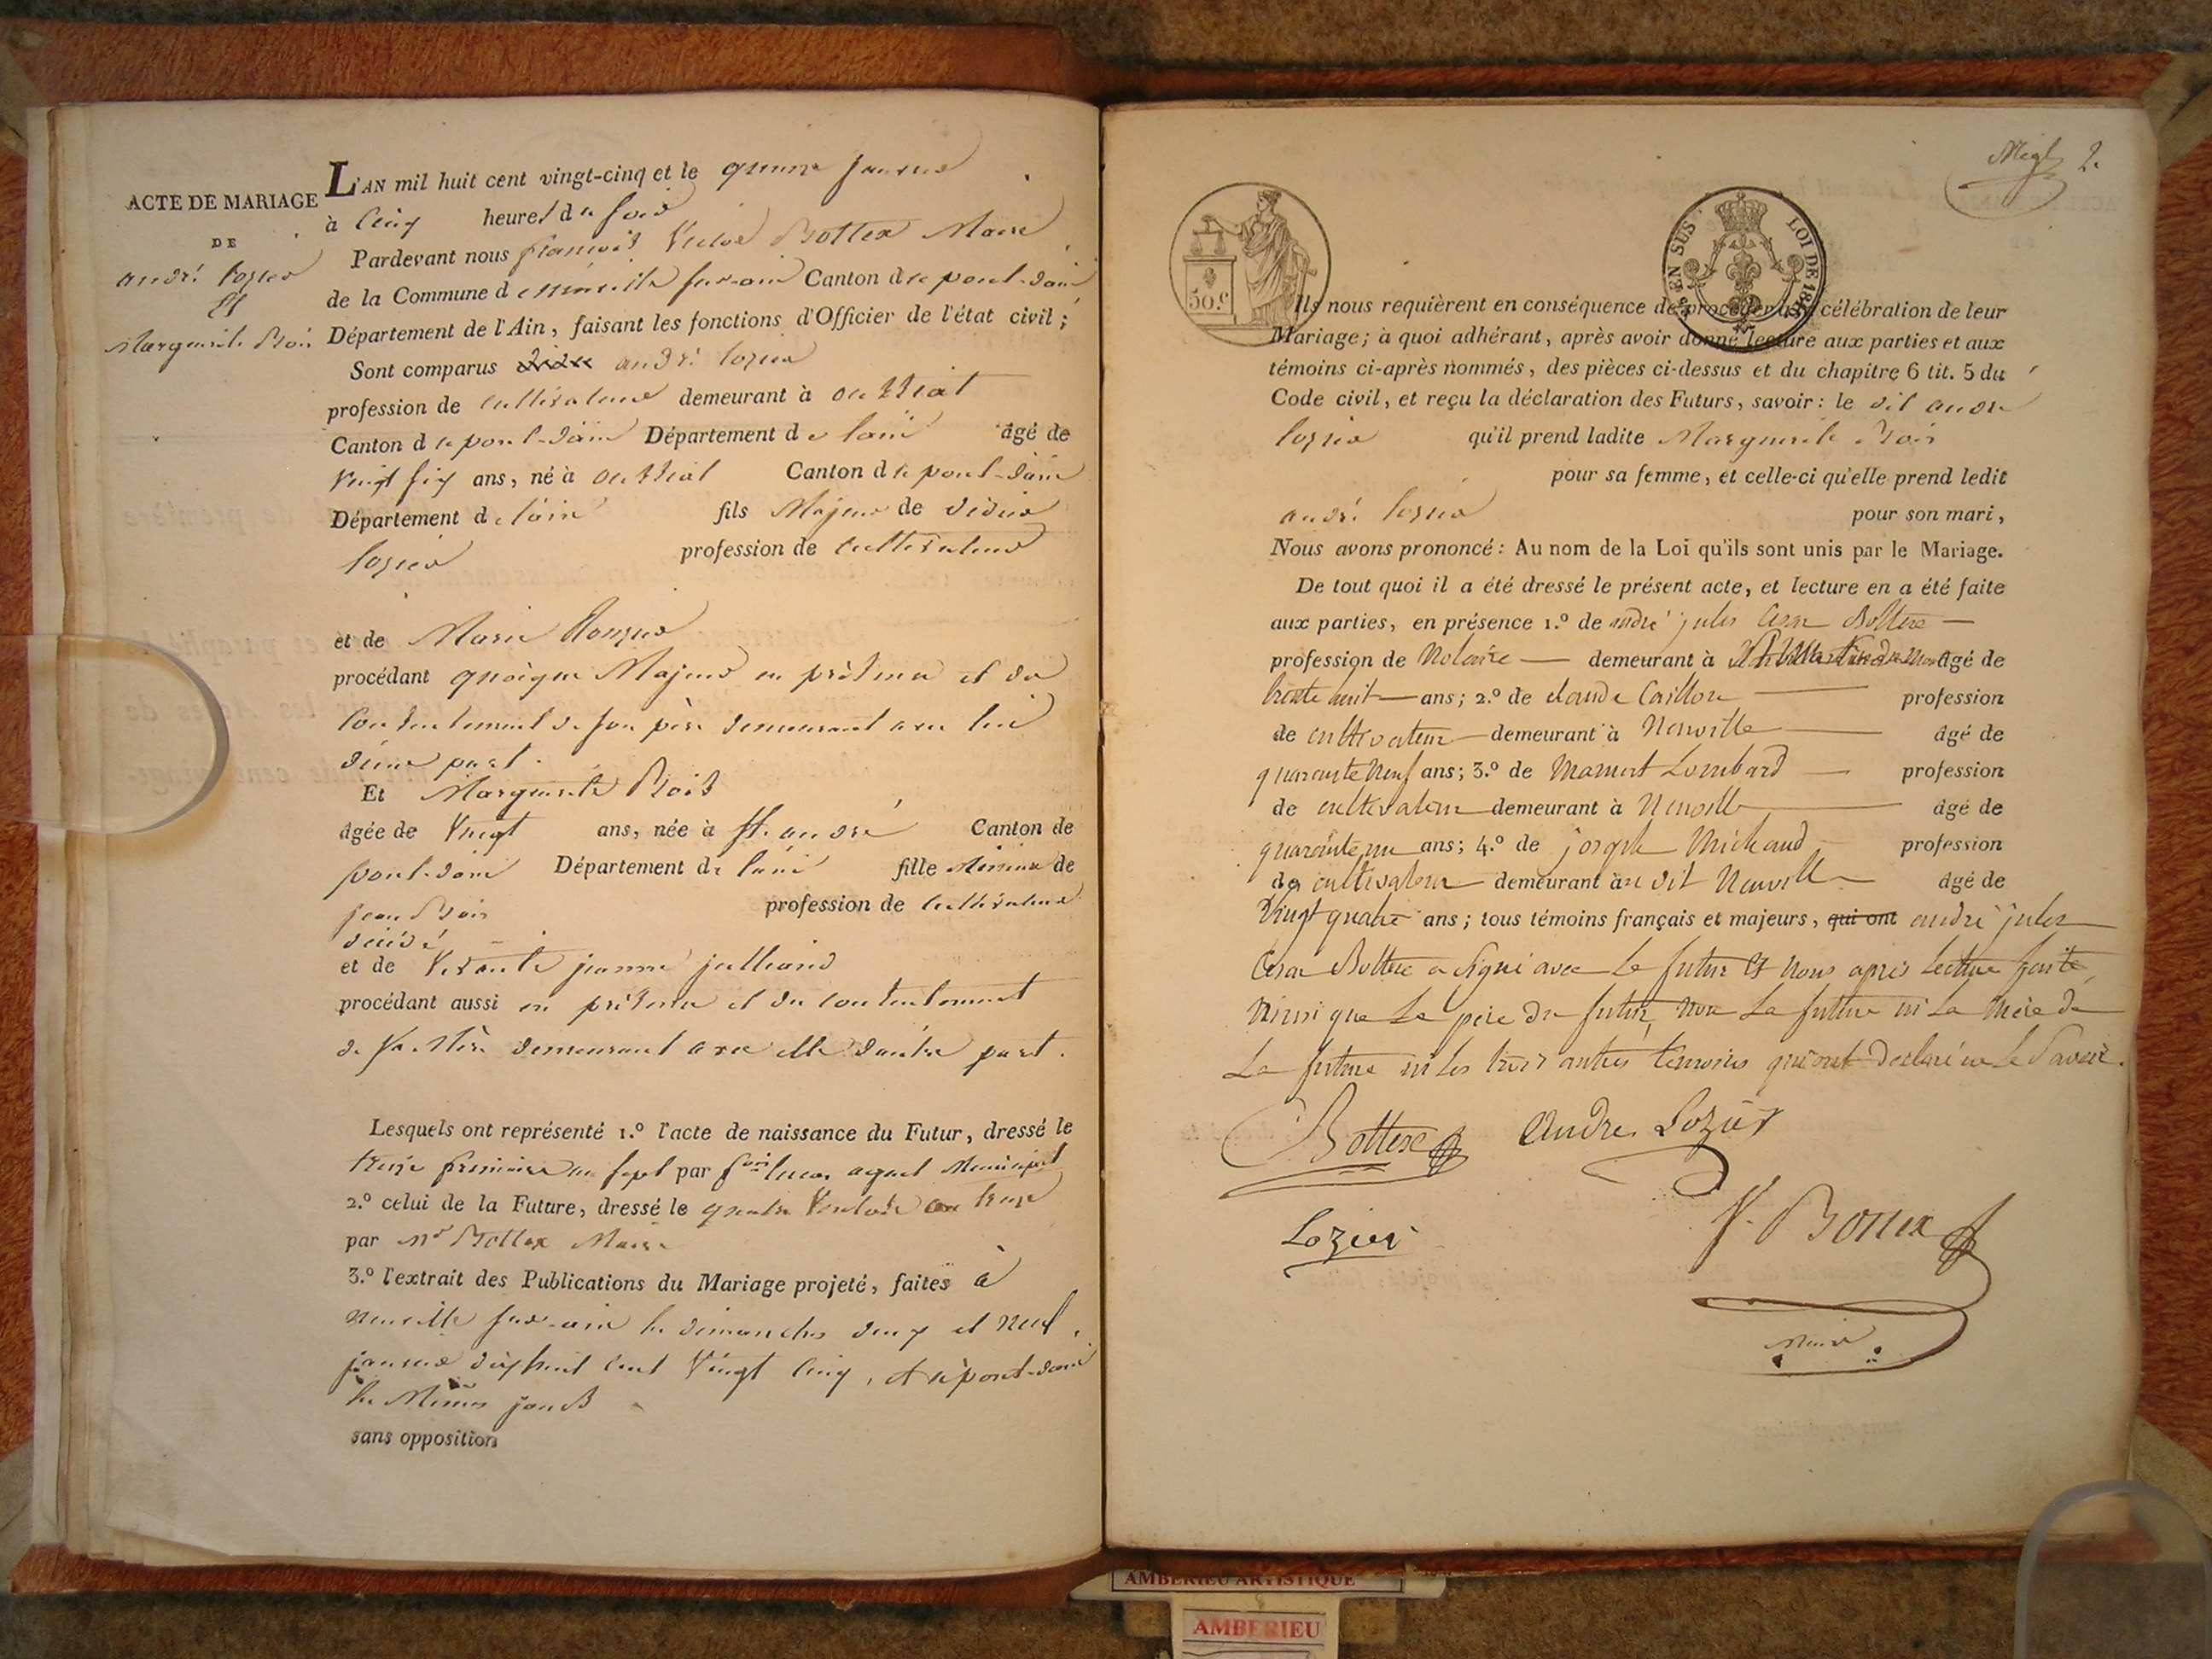 ACTE DE MARIAGE
DE
andré Lozier
Et
Marguerite Bois
L'AN mil huit cent vingt-cinq et le quinze janvier
à Cinq heures du soir
Pardevant nous françois Victor Bottex Maire
de la Commune de neuville sur-ain Canton de pont-d'ain
Département de l'Ain, faisant les fonctions d'Officier de l'état civil;
Sont comparus andré lozier
profession de cultivateur demeurant à outriat
Canton de pont-d'ain Département de l'ain âgé de
vingt six ans, né à outriat Canton de pont-d'ain
Département de l'ain fils Majeur de didier
lozier profession de cultivateur
et de Marie
procédant quoique Majeur en présence et du
consentement de son père demeurant avec lui
d'une part.
Et Marguerite Bois
âgée de Vingt ans, née à st. andré Canton de
pont-d'ain Département de l'ain fille Mineure de
jean Bois profession de cultivateur
décédé
et de Vivante jeanne julliard
procédant aussi en présence et du consentement
de sa Mère demeurant avec elle d'autre part.
Lesquels ont représenté 1.º l'acte de naissance du Futur, dressé le
treize frimaire an sept par agent Municipal
2.º celui de la Future, dressé le quatre Ventose an treize
par Mr Bottex Maire
3.º l'extrait des Publications du Mariage projeté, faites à
neuville sur-ain les dimanches deux et neuf
janvier dix huit cent Vingt Cinq, et à pont-d'ain
les Mêmes jours
sans opposition
2.
50.c
EN SUS
LOI DE 1816
Ils nous requièrent en conséquence de procéder à la célébration de leur
Mariage; à quoi adhérant, après avoir donné lecture aux parties et aux
témoins ci-après nommés, des pièces ci-dessus et du chapitre 6 tit. 5 du
Code civil, et reçu la déclaration des Futurs, savoir: le dit andré
lozier qu'il prend ladite Marguerite Bois
pour sa femme, et celle-ci qu'elle prend ledit
andré lozier pour son mari,
Nous avons prononcé: Au nom de la Loi qu'ils sont unis par le Mariage.
De tout quoi il a été dressé le présent acte, et lecture en a été faite
aux parties, en présence 1.º de andré jules Cesar Bottex
profession de Notaire demeurant à âgé de
trente huit ans; 2.º de claude Caillon profession
de cultivateur demeurant à Neuville âgé de
quarante neuf ans; 3.º de Mamert Lombard profession
de cultivateur demeurant à Neuville âgé de
quarante un ans; 4.º de joseph Michaud profession
de cultivateur demeurant au dit Neuville âgé de
Vingt quatre ans; tous témoins français et majeurs, qui ont andré jules
Cesar Bottex a signé avec Le futur et Nous après Lecture faite,
Ainsi que Le père du futur, non La future ni La Mère de
La future ni Les trois autres témoins qui ont déclaré ne Le Savoir.
Bottex
Andre Lozier
Lozier
V. Bottex
Maire
AMBERIEU ARTISTIQUE
AMBERIEU